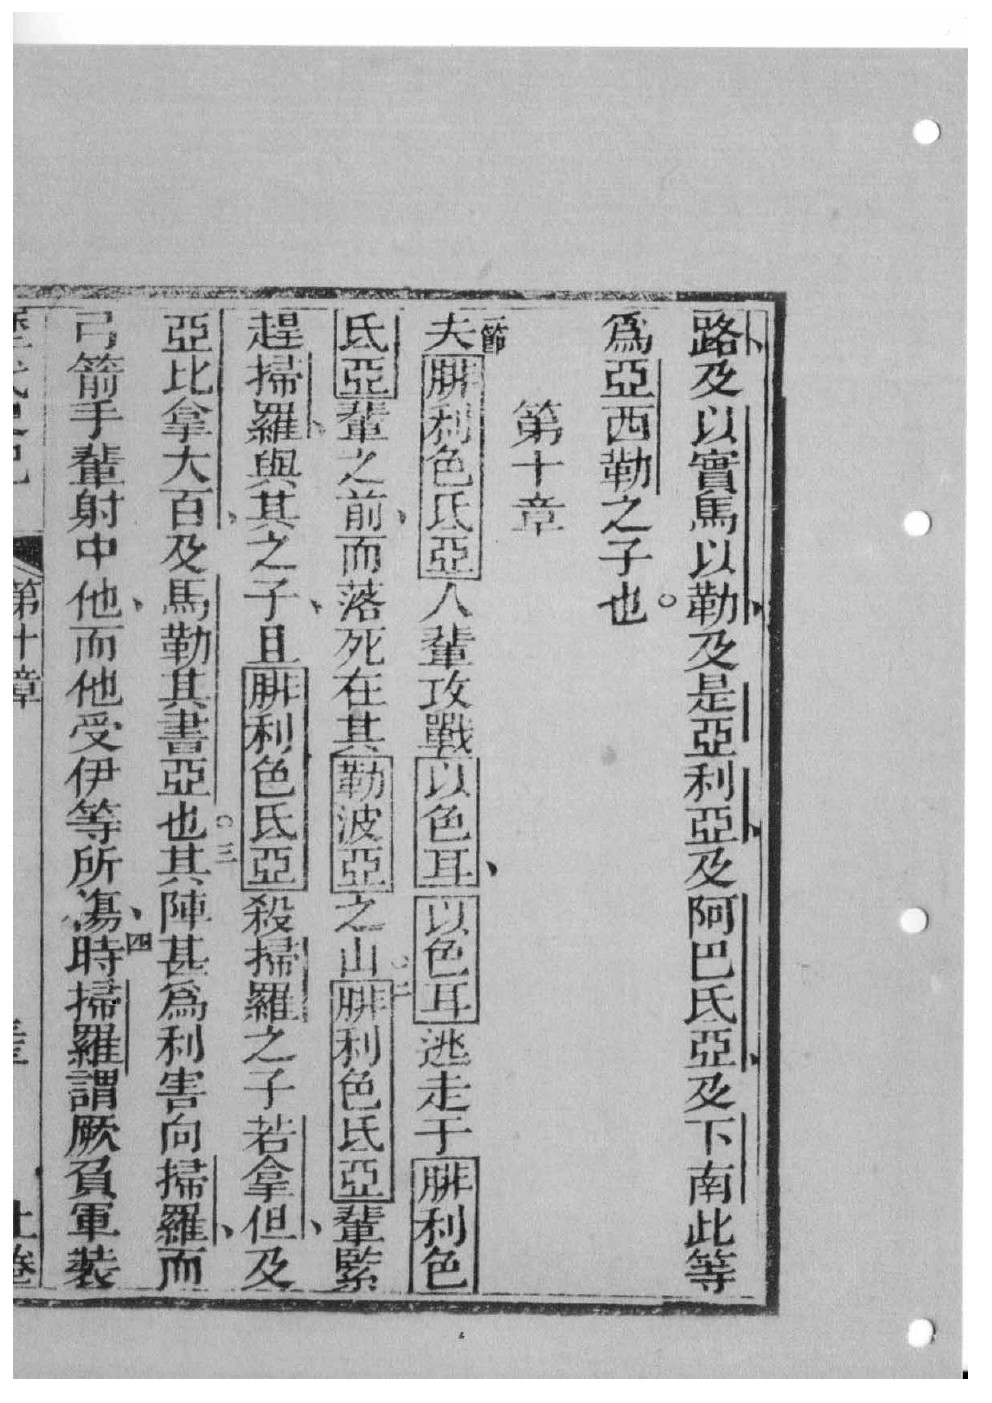 路、及以實馬以勒、及是亞利亞、及阿巴氏亞、及下南此等
爲亞西勒之子也。
第十章
一節夫腓利色氏亞人輩攻戰以色耳、以色耳逃走于腓利色
氏亞輩之前、而落死在其勒波亞之山。二腓利色氏亞輩緊
趕掃羅、與其之子、且腓利色氏亞殺掃羅之子若拿但、及
亞比拿大百、及馬勒其書亞也。三其陣甚爲利害向掃羅、而
弓箭手輩射中他、而他受伊等所傷、四時掃羅謂厥負軍裝
歷代史記 第十章 上卷